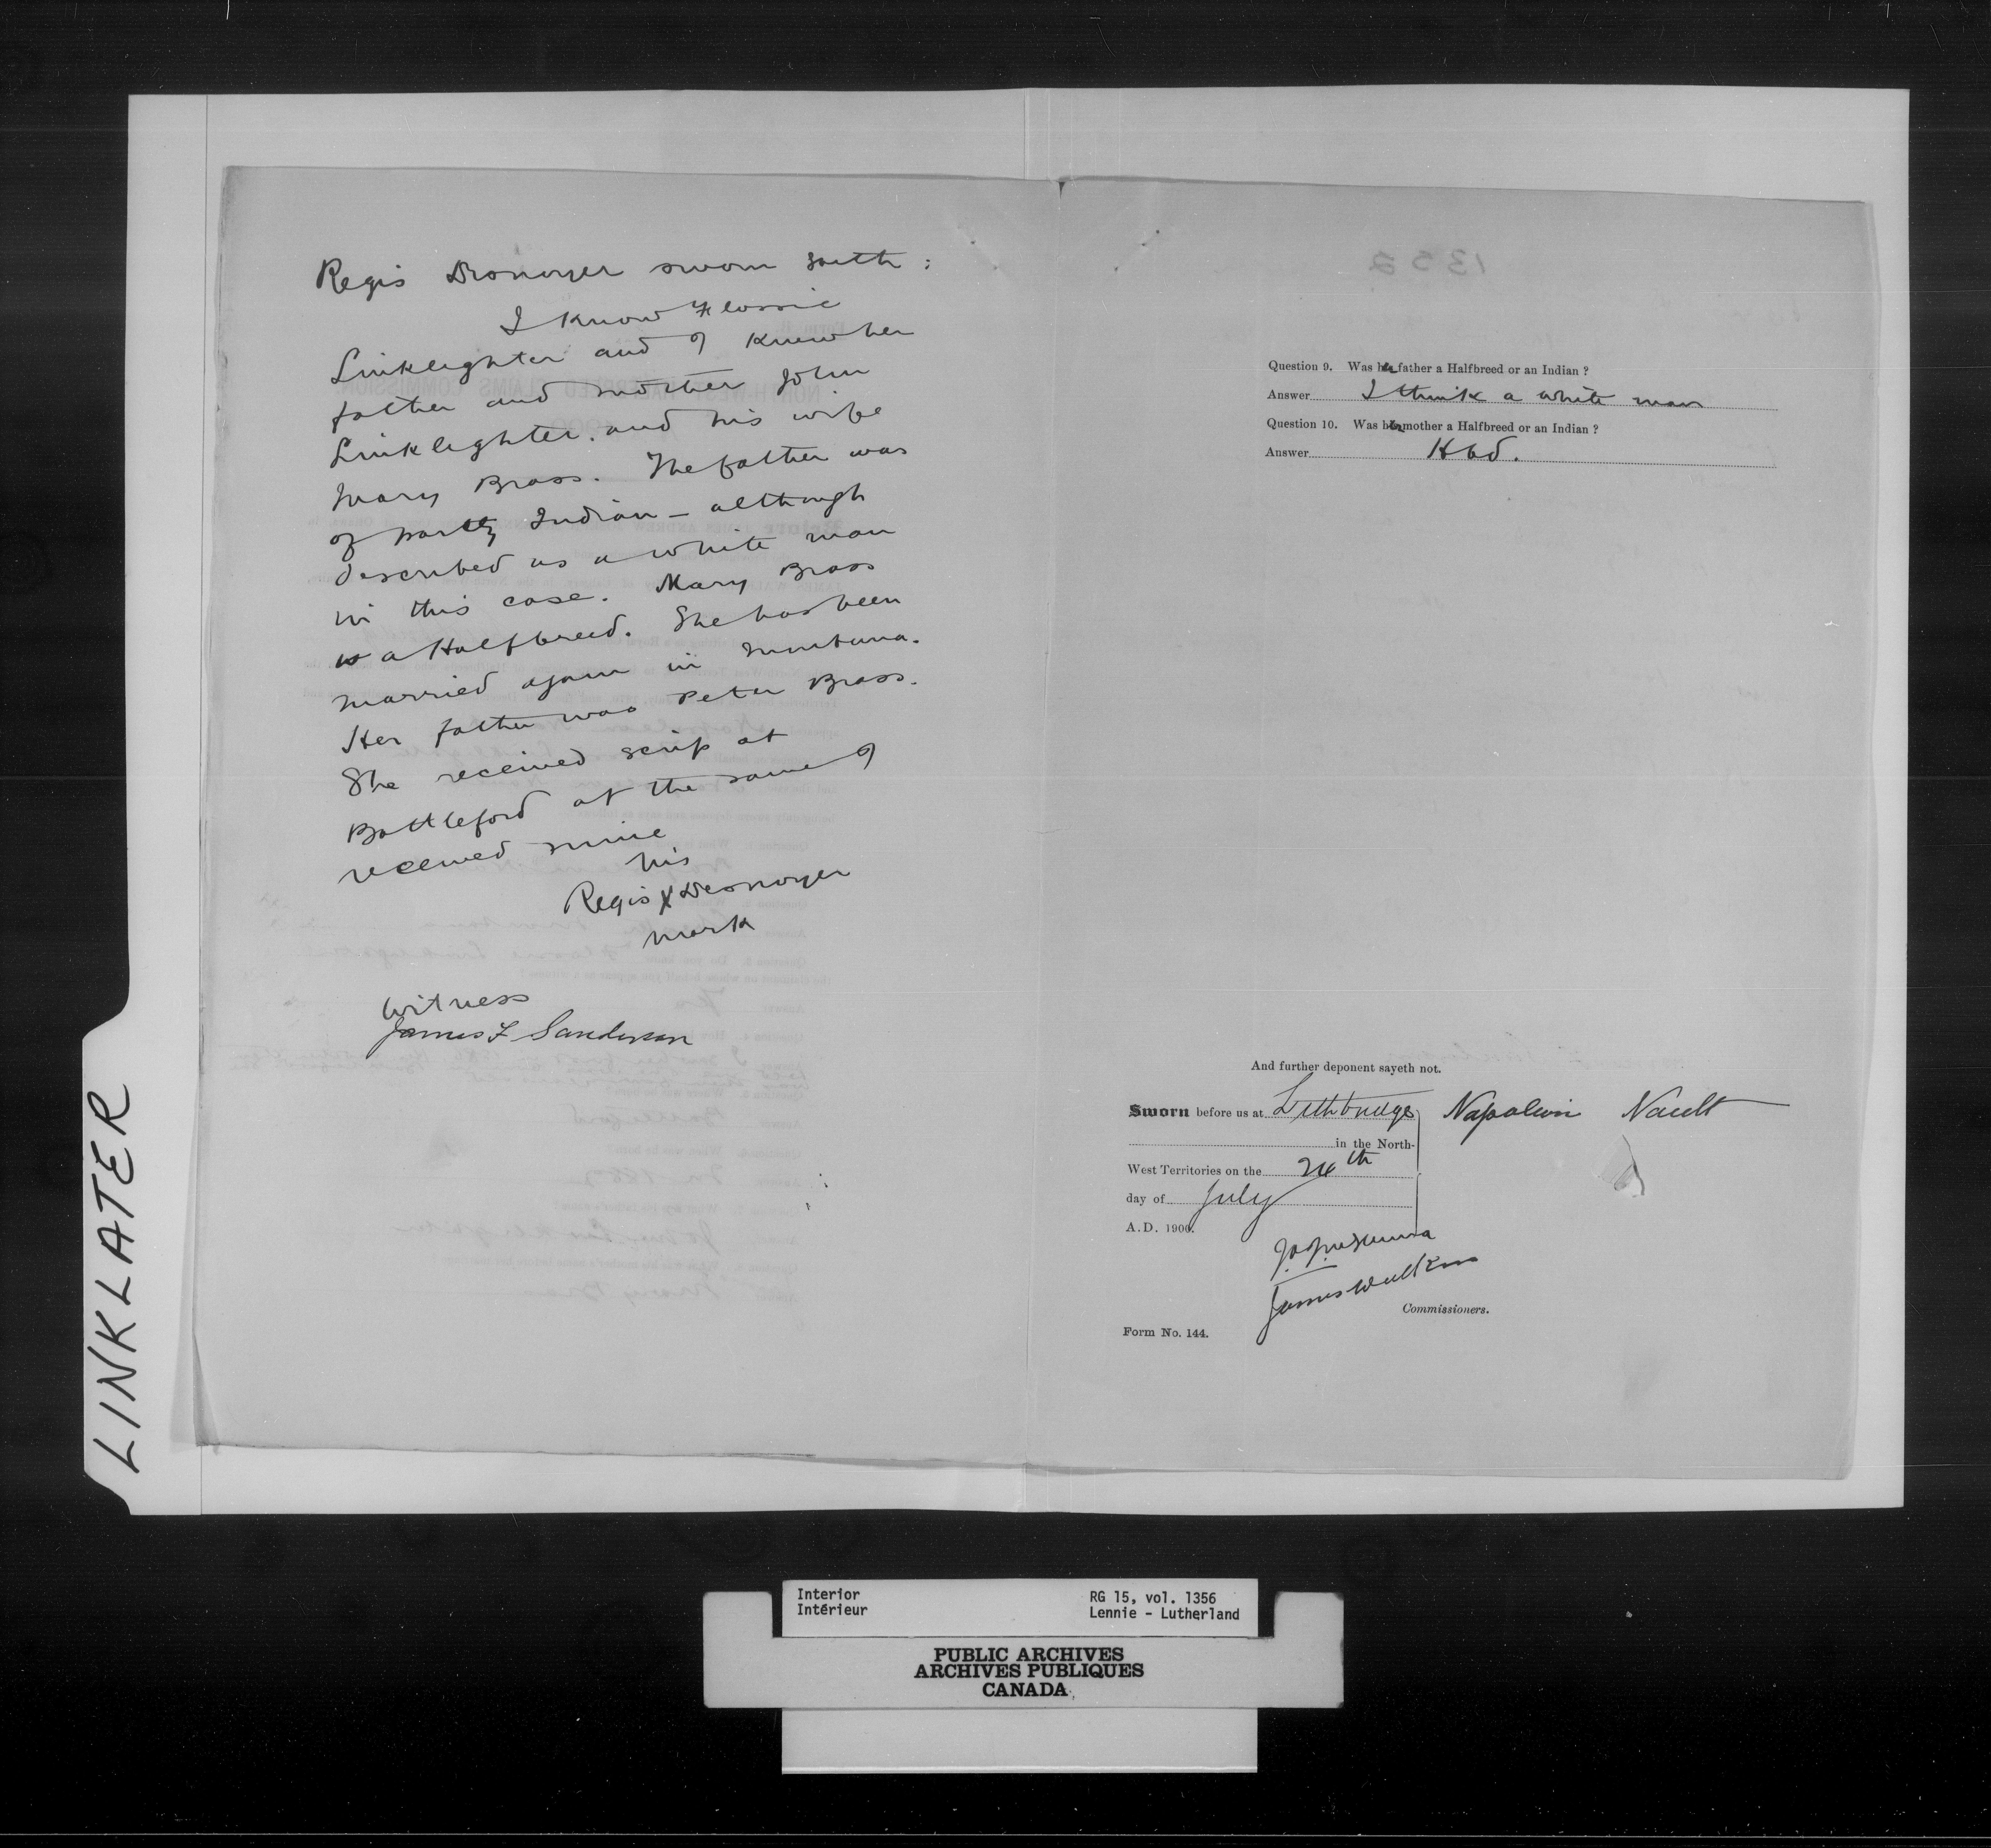 LINKLATER
Regis Desnoyer sworn saith :
I know Flossie
Linklighter and I knew her
father and mother John
Linklighter. and his wife
Mary Brass. The father was
of partly Indian – although
described as a white man
in this case. Mary Brass
is a Halfbreed. She has been
married again in Montana.
Her father was Peter Brass.
She received scrip at
Battleford at the same I
received mine
his
Regis X Desnoyer
mark
Witness
James F Sanderson
1352
Question 9. Was her father a Halfbreed or an Indian ?
Answer I think a white man
Question 10. Was her mother a Halfbreed or an Indian ?
Answer Hbd.
And further deponent sayeth not.
Sworn before us at Lethbridge Napoleon Nault
in the North-
West Territories on the 24th
day of July
A.D. 1900.
James Walker
Commissioners.
Form No. 144.
Interior RG 15, vol. 1356
Intérieur Lennie - Lutherland
PUBLIC ARCHIVES
ARCHIVES PUBLIQUES
CANADA